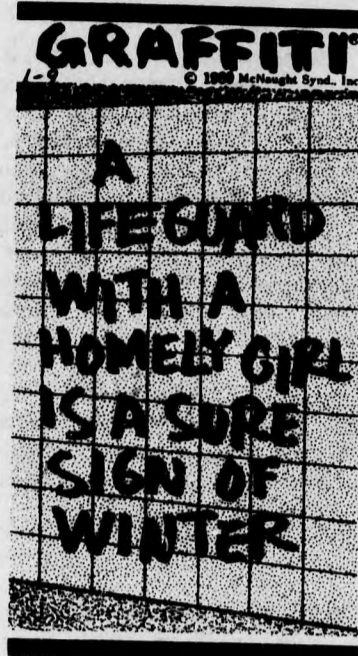 GRAFFITI
1-9
© 1980 McNaught Synd., Inc
A
LIFEGUARD
WITH A
HOMELY GIRL
IS A SURE
SIGN OF
WINTER